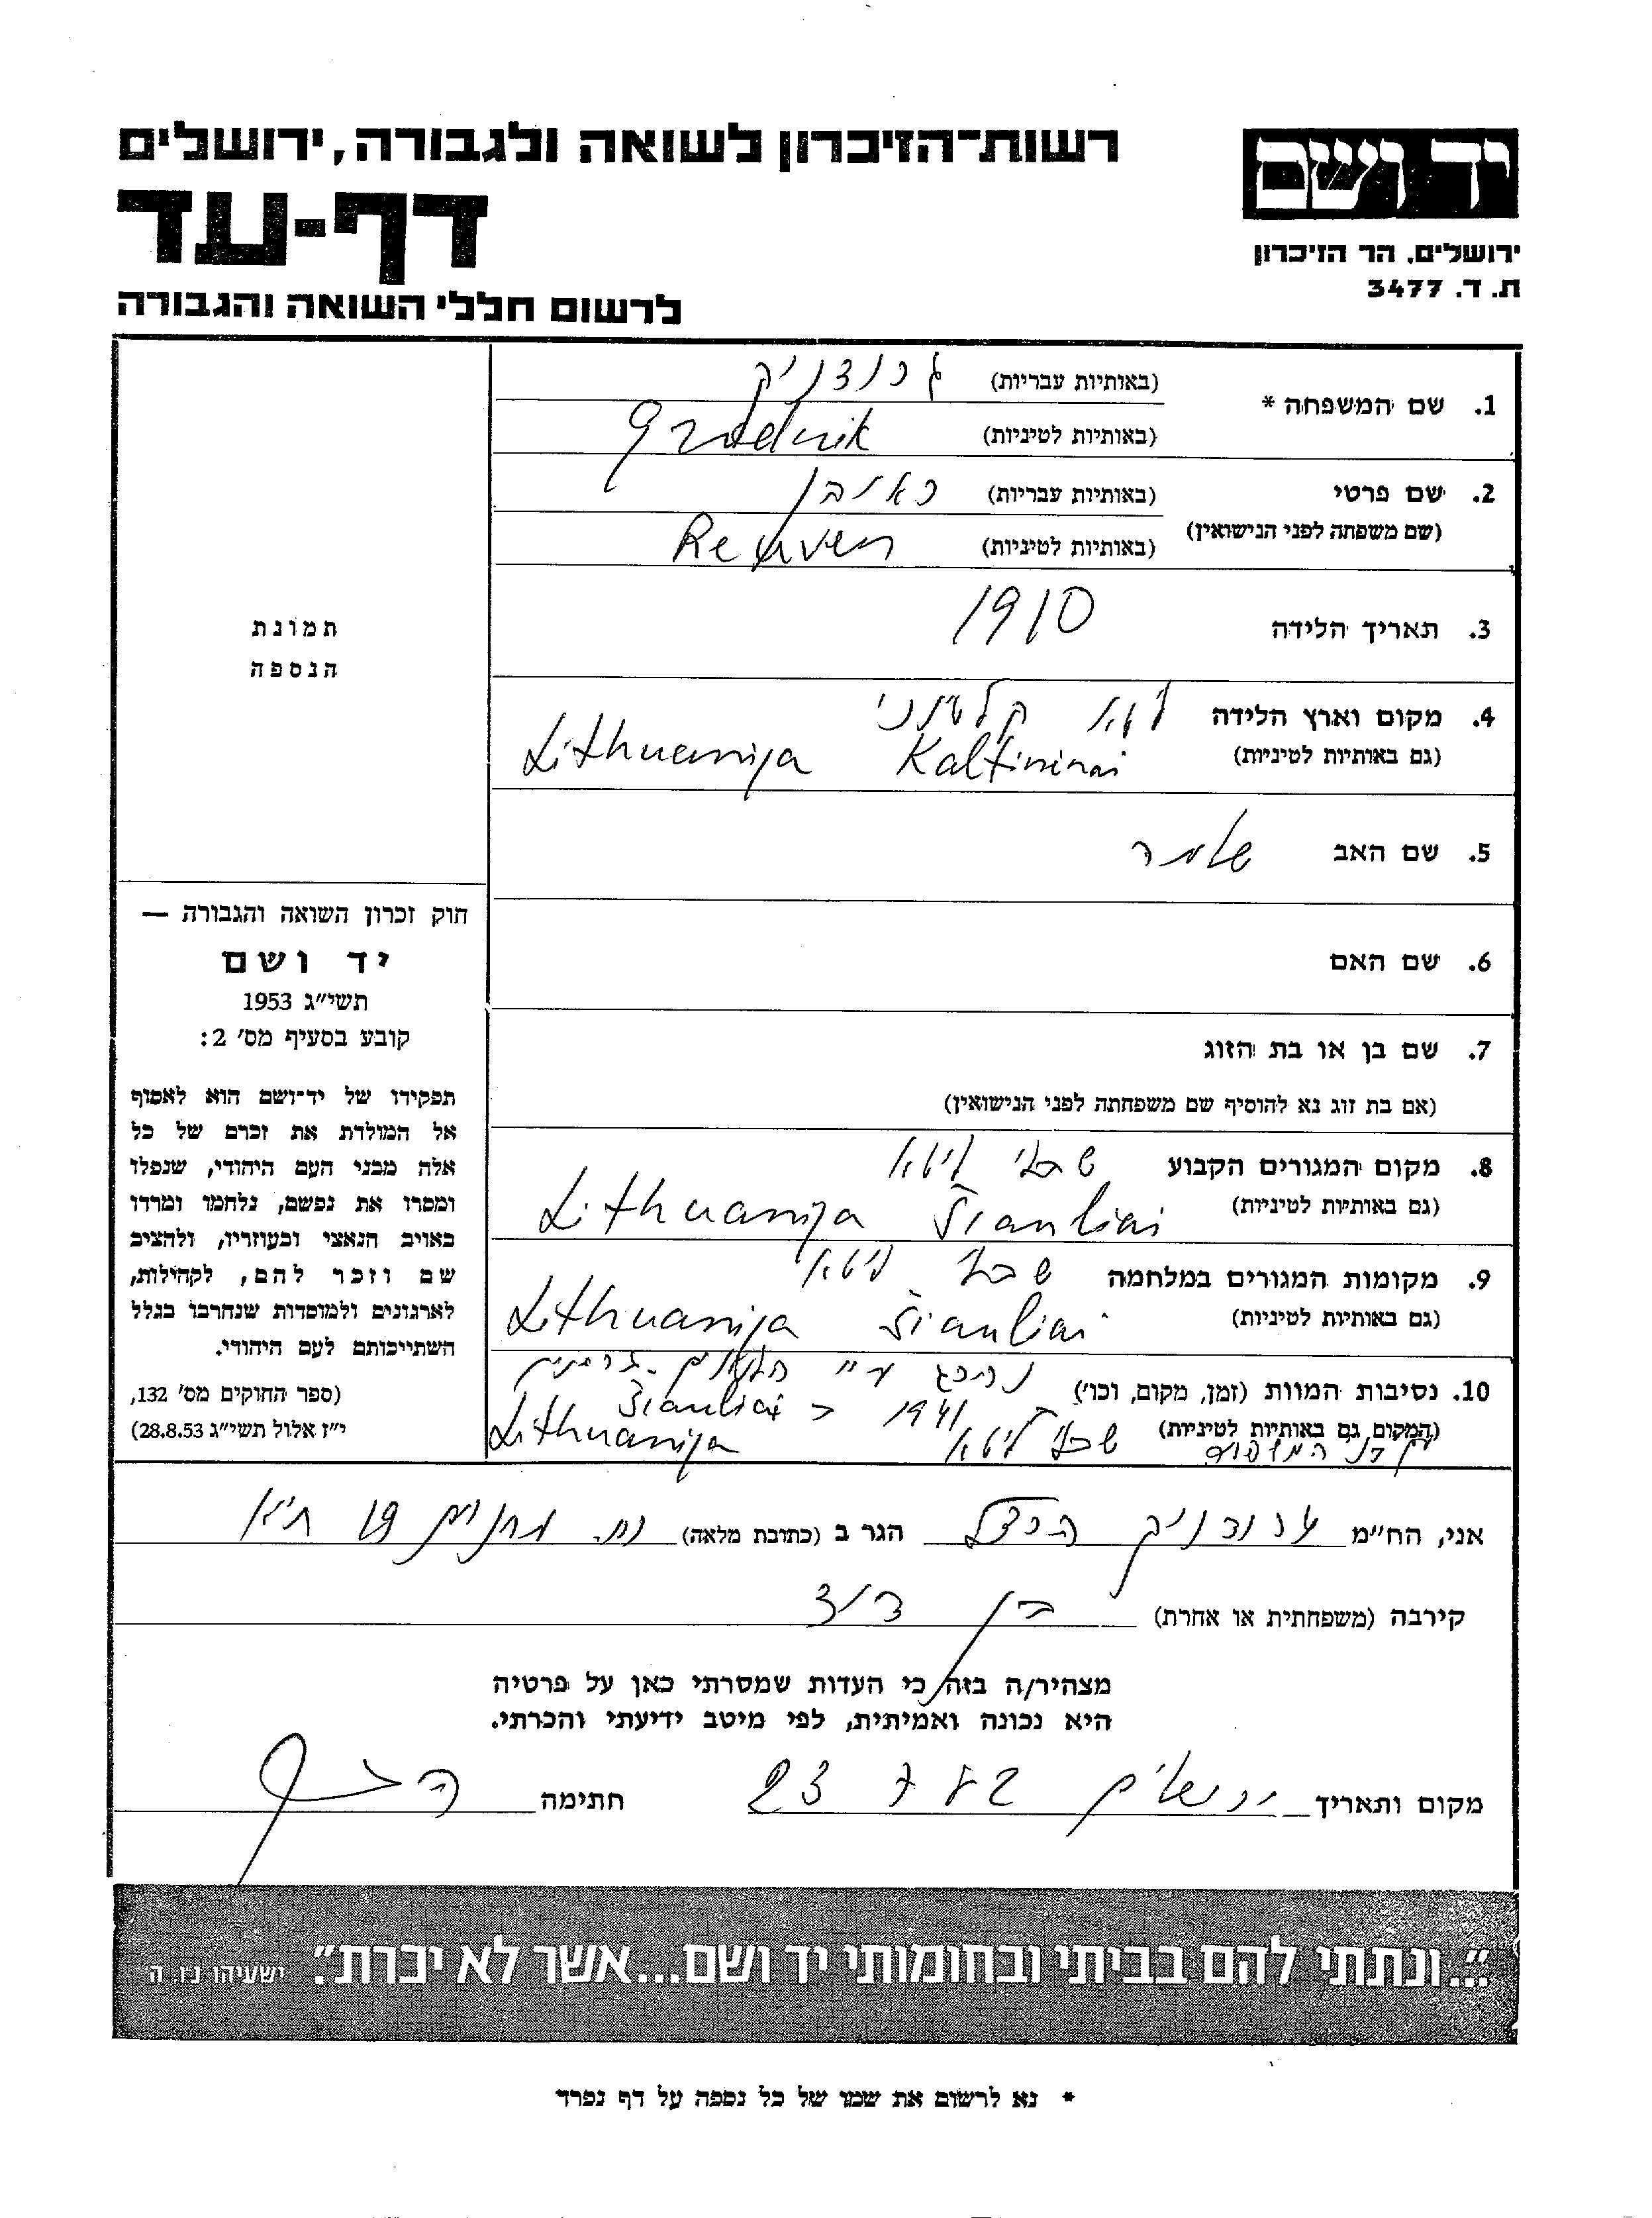 רשות־הזיכרון לשואה ולגבורה, ירושלים
דף-עד
לרשום חללי השואה והגבורה
יד ושם
ירושלים, הר הזיכרון
ת. ד. 3477
1. שם המשפחה * (באותיות עבריות) גרודניק
(באותיות לטיניות) Grodnik
2. שם פרטי (באותיות עבריות) ראובן
(שם משפחה לפני הנישואין) (באותיות לטיניות) Reuven
3. תאריך הלידה 1910
4. מקום וארץ הלידה ליטא קלטיננאי
(גם באותיות לטיניות) Lithuanija Kaltininai
5. שם האב
6. שם האם
7. שם בן או בת הזוג
(אם בת זוג נא להוסיף שם משפחתה לפני הנישואין)
8. מקום המגורים הקבוע שבלי ליטא
(גם באותיות לטיניות) Lithuanija Šiauliai
9. מקומות המגורים במלחמה שבלי ליטא
(גם באותיות לטיניות) Lithuanija Šiauliai
10. נסיבות המוות (זמן, מקום, וכו') נהרג ע"י
Šiauliai 1941
(המקום גם באותיות לטיניות) שבלי ליטא Lithuanija
תמונת
הנספה
חוק זכרון השואה והגבורה —
יד ושם
תשי"ג 1953
קובע בסעיף מס' 2:
תפקידו של יד־ושם הוא לאסוף
אל המולדת את זכרם של כל
אלה מבני העם היהודי, שנפלו
ומסרו את נפשם, נלחמו ומרדו
באויב הנאצי ובעוזריו, ולהציב
שם וזכר להם, לקהילות,
לארגונים ולמוסדות שנחרבו בגלל
השתייכותם לעם היהודי.
(ספר החוקים מס' 132,
י"ז אלול תשי"ג 28.8.53)
אני, הח"מ גרודניק הרצל הגר ב (כתובת מלאה) ת"א
קירבה (משפחתית או אחרת) בן דוד
מצהיר/ה בזה כי העדות שמסרתי כאן על פרטיה
היא נכונה ואמיתית, לפי מיטב ידיעתי והכרתי.
מקום ותאריך ירושלים חתימה
"...ונתתי להם בביתי ובחומותי יד ושם...אשר לא יכרת". ישעיהו נ"ו, ה
* נא לרשום את שמו של כל נספה על דף נפרד